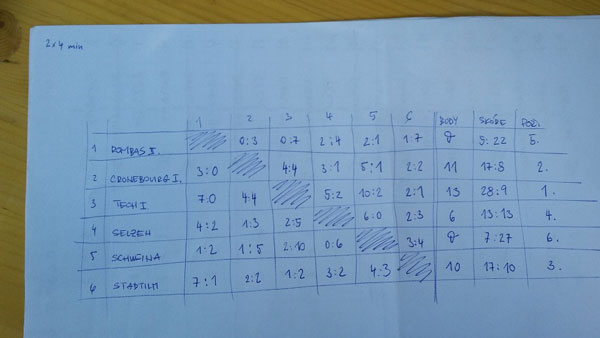 2x4 min
1 2 3 4 5 6 BODY SKÓRE POŘ.
1 ROMBAS II. 0:3 0:7 2:4 2:1 1:7 5:22 5.
2 CRONEBOURG I. 3:0 4:4 3:1 5:1 2:2 11 17:8 2.
3 TECH I 7:0 4:4 5:2 10:2 2:1 13 28:9 1.
4 SELZEN 4:2 1:3 2:5 6:0 2:3 6 13:13 4.
5 SCHWEINA 1:2 1:5 2:10 0:6 3:4 7:27 6.
6 STADTILM 7:1 2:2 1:2 3:2 4:3 10 17:10 3.